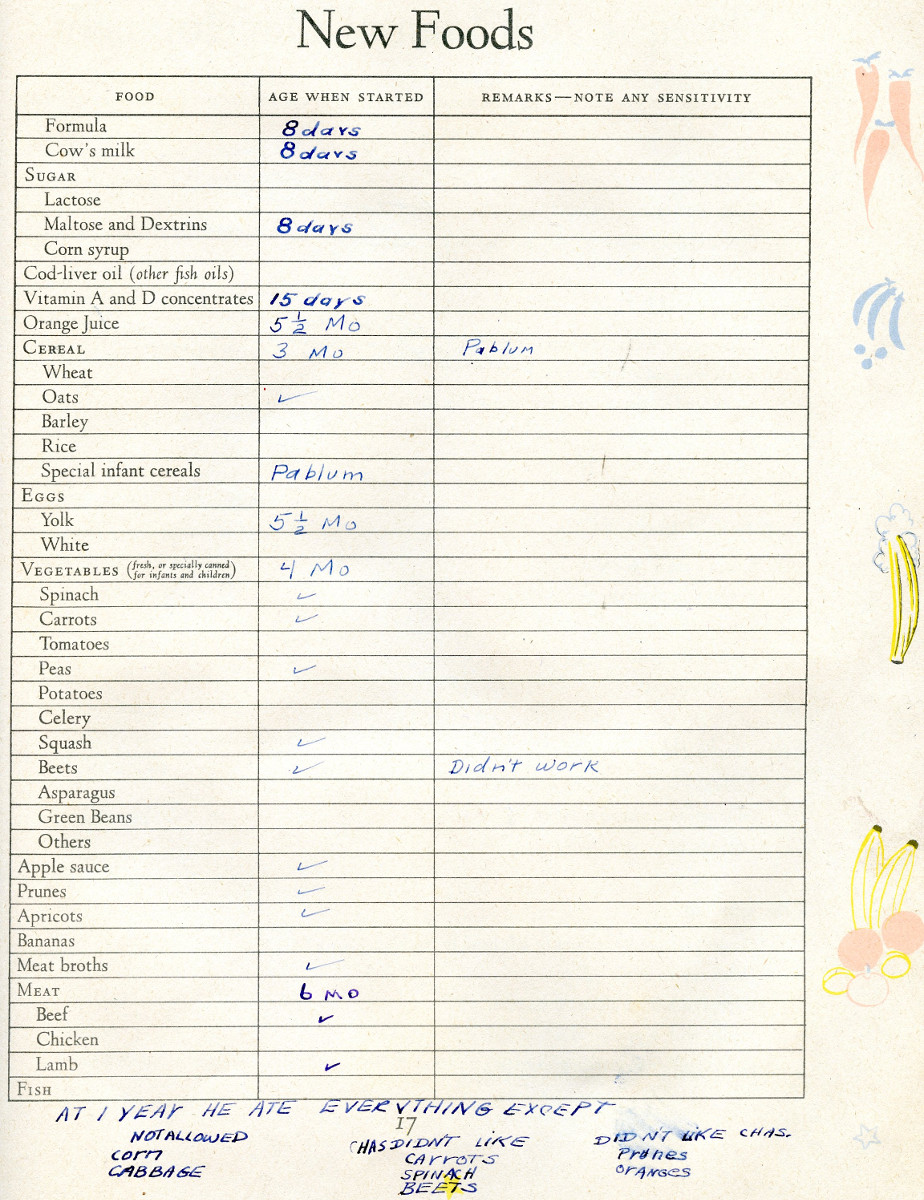 New Foods
FOOD AGE WHEN STARTED REMARKS—NOTE ANY SENSITIVITY
Formula 8 days
Cow's milk 8 days
SUGAR
Lactose
Maltose and Dextrins 8 days
Corn syrup
Cod-liver oil (other fish oils)
Vitamin A and D concentrates 15 days
Orange Juice 5 1/2 Mo
CEREAL 3 Mo Pablum
Wheat
Oats ✓
Barley
Rice
Special infant cereals Pablum
EGGS
Yolk 5 1/2 Mo
White
VEGETABLES (fresh, or specially canned for infants and children) 4 Mo
Spinach ✓
Carrots ✓
Tomatoes
Peas ✓
Potatoes
Celery
Squash ✓
Beets ✓ Didn't work
Asparagus
Green Beans
Others
Apple sauce ✓
Prunes ✓
Apricots ✓
Bananas
Meat broths ✓
MEAT 6 MO
Beef ✓
Chicken
Lamb ✓
FISH
AT 1 YEAR HE ATE EVERYTHING EXCEPT
17
NOT ALLOWED CHAS DIDNT LIKE DIDN'T LIKE CHAS.
CORN CARROTS PRUNES
CABBAGE SPINACH ORANGES
BEETS